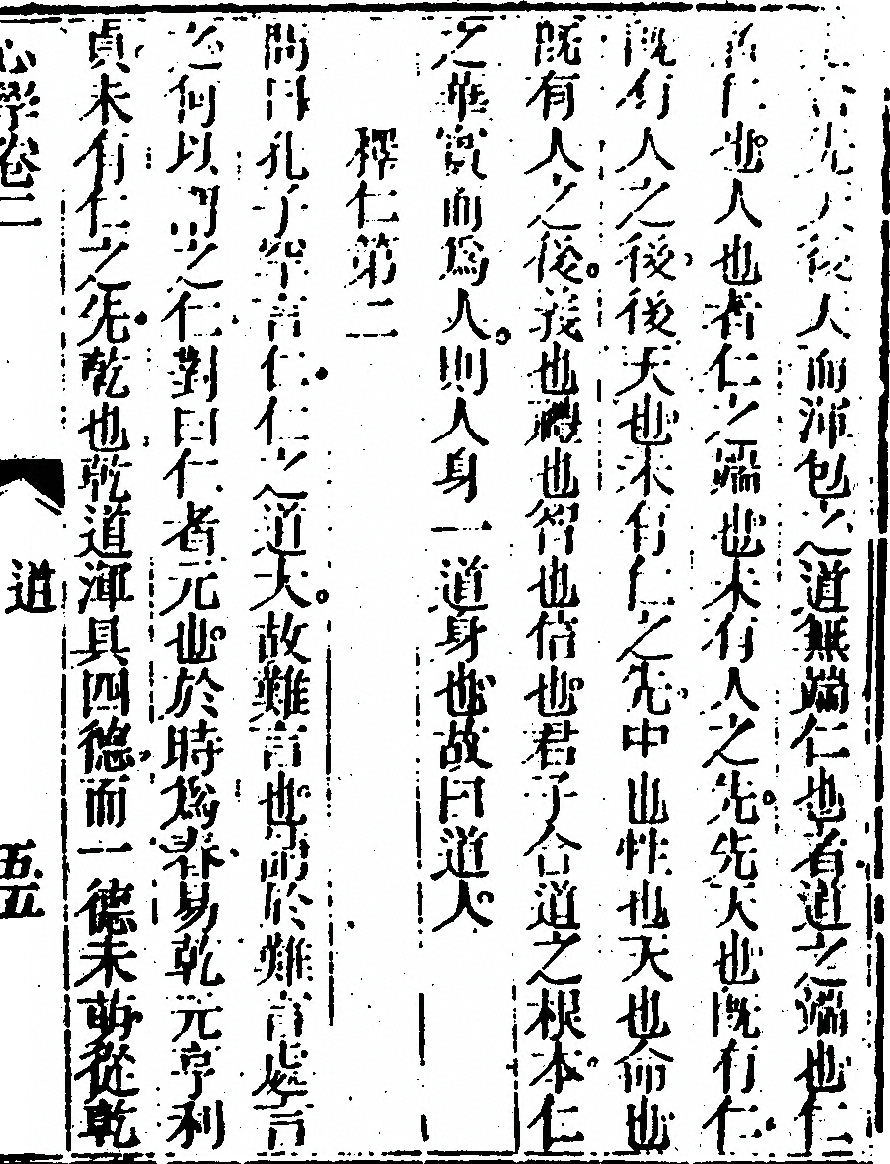 先天後天而渾包之道無端仁也者道之端也仁
者仁也人也者仁之端也未有人之先先天也既有仁
既有人之後後天也未有仁之先中也性也天也命也
既有人之後義也禮也智也信也君子合道之根本仁
之華實而爲人則人身一道身也故曰道人
釋仁第二
問曰孔子罕言仁仁之道大故難言也請於難言處言
之何以謂之仁對曰仁者元也於時爲春易乾元亨利
貞未有仁之先乾也乾道渾具四德而一德未萌從乾
心學卷二
道
五五